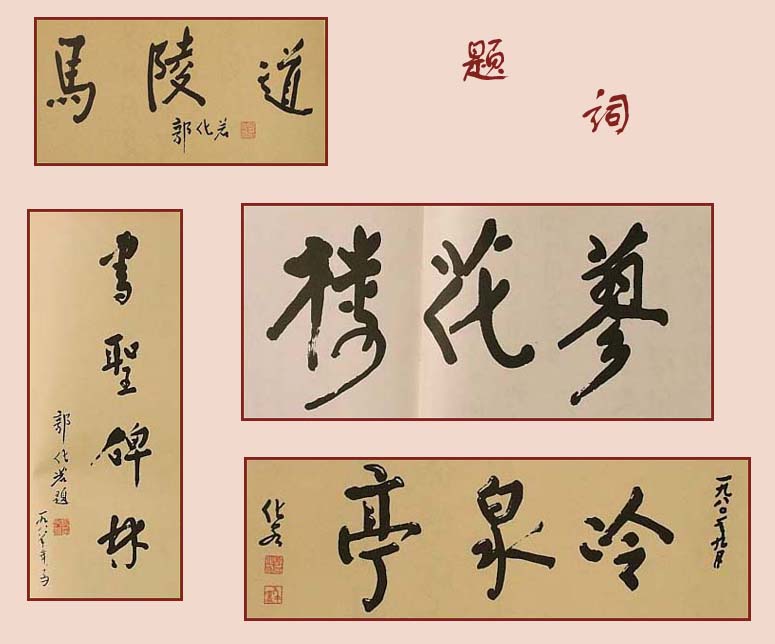 馬陵道
郭化若
題
詞
書聖碑林
郭化若題
蓼花樓
一九八〇年九月
冷泉亭
化若